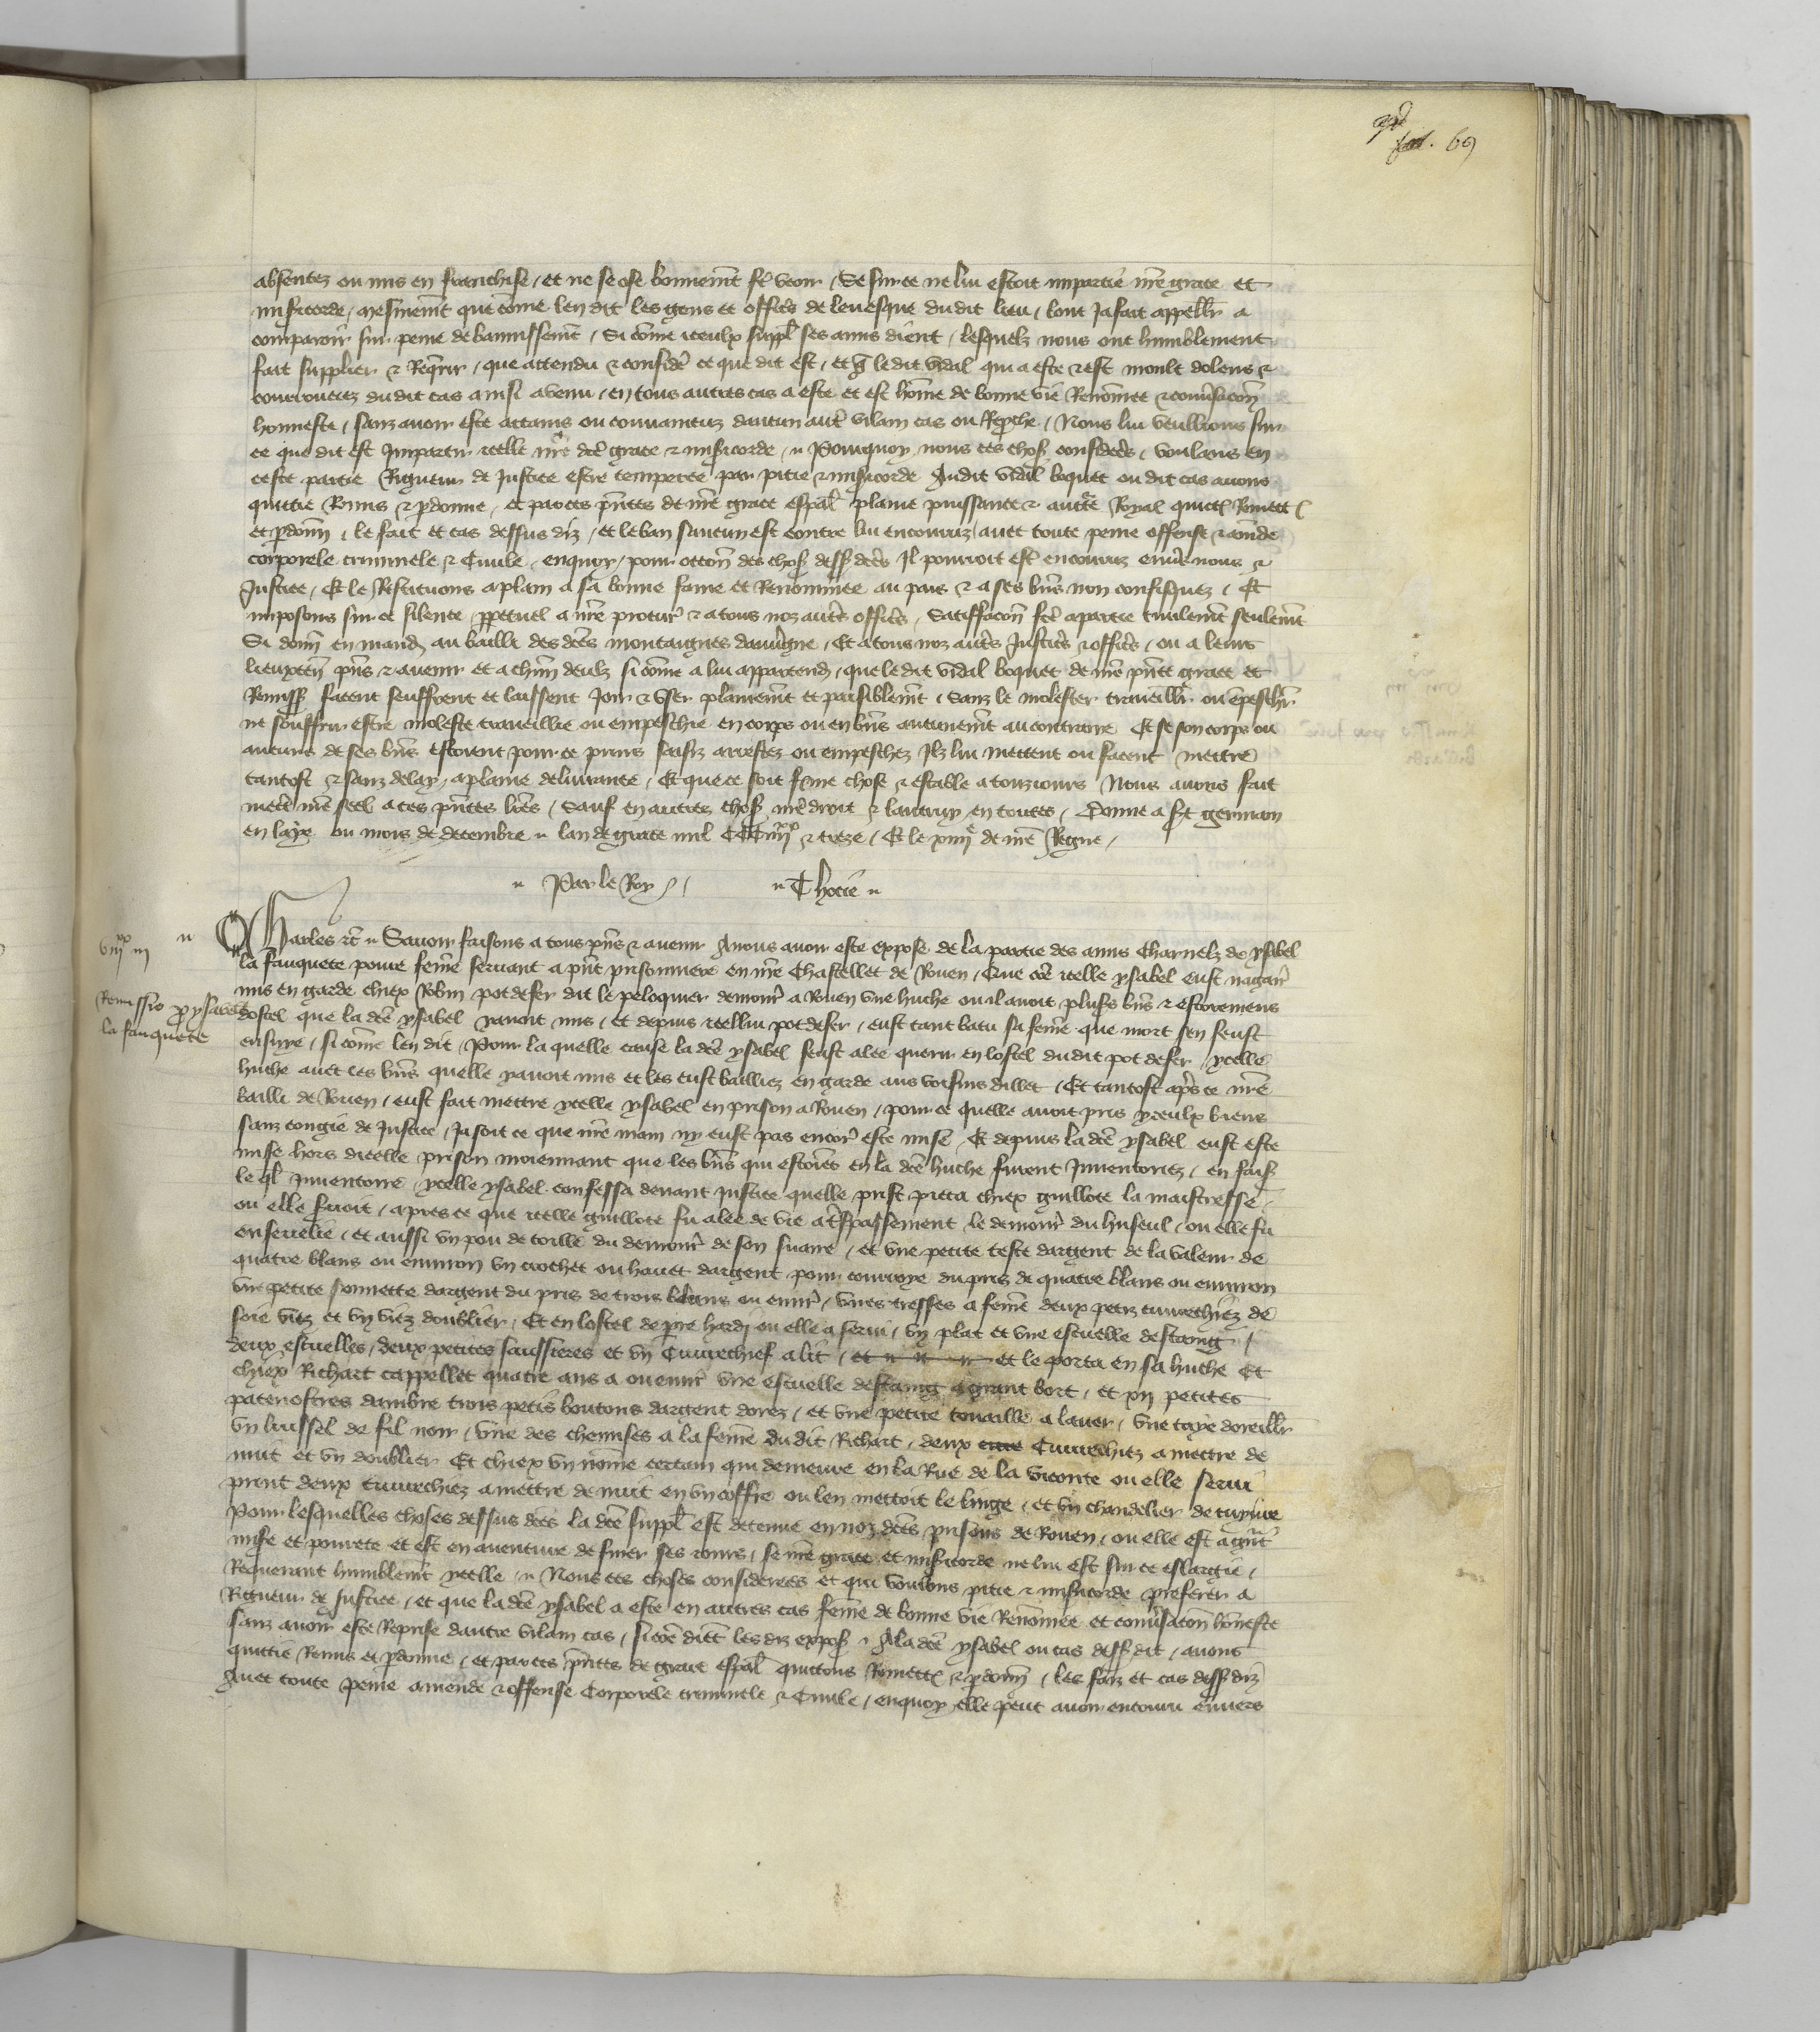 fol. 69
absentez ou mis en franchise / et ne se ose bonnemt fe veoir / Se sur ce ne lui estoit impartie nre grace et
misicorde / mesmemt que come len dit les gens et offics de levesque dudit lieu / lont ja fait appeller a
comparoir sur peine de bannissemt / Si come iceulx suppl ses amis dient / lesquelz nous ont humblement
fait supplier & Requir / que attendu & consider ce que dit est / et q ledit vidal qui a este & est moult dolens &
courrouciez dudit cas ainsi avenu / en tous autres cas a este et est home de bonne vie Renomee & conusacon
honneste / sanz avoir este attains ou convaincuz daucun autr vilain cas ou Repche / Nous lui veullions sur
ce que dit est Impartir icelle nre dce grace & misicorde / Pourquoy nous ces chos considees / voulans en
ceste partie Rigueur de Justice estre temperee par pitie & misicorde Audit vidal boquet ou dit cas avons
quictie Remis & pdonne / et par ces pntes de nre grace espal plaine puissance & auctte Royal quictos Remett
et pdonn / le fait et cas dessus diz / et le ban saucun est contre lui encouruz / avec toute peine offense & amde
corporele criminele & Civile / en quoy / pour occon des chos dess dces Il pourroit est encouruz envers nous &
Justice / Et le Restituons a plain a sa bonne fame et Renommee au pais & a ses bns non confisquez / Et
imposons sur ce silence ppetuel a nre procur & a tous noz autrs offics / Satisfacon fce a partie civilemt seulemt
Si donn en mand au bailli des dces montaignes dauvgne / Et a tous noz autrs Justics & offics / ou a leurs
lieuxten pns & avenir et a chun deulz si come a lui appartend / que ledit vidal boquet de nre pnte grace et
Remiss facent seuffrent et laissent Joir & user plainemt et paisiblemt / Sanz le molester traveillr ou epeschr
ne souffrir estre moleste traveillie ou empeschie en corps ou en bns aucunemt au contraire Et se son corps ou
aucuns de ses bns estoient pour ce prins saisiz arrestez ou empeschez Ilz lui mettent ou facent mettre
tantost & sanz delay / a plaine delivrance / Et que ce soit ferme chose & estable a tousjours Nous avons fait
mettre nre seel a ces pntes lres / Sauf en autres chos nre droit & lautruy en toutes / Donne a st germain
en laye ou mois de decembre lan de grace mil CCC iiijxx & treze / Et le xiiij de nre Regne /
Par le Roy / Thocie
viijxx iij
Charles &c Savoir faisons a tous pns & avenir A nous avoir este expose de la partie des amis Charnelz de ysabel
la fauquete povre feme servant a pnt prisonniere en nre Chastellet de Rouen / Que coe icelle ysabel eust nagair
mis en garde chiex Robin pot de fer dit le peloquier demour a Rouen une huche ou il avoit pluss bns & estoremens
Remissio p ysabel
la fauquete
dostel que la dce ysabel y avoit mis / et depuis icellui pot de fer / eust tant batu sa feme que mort sen feust
ensuye / si come len dit / Pour la quelle cause la dce ysabel feust alee querir en lostel dudit pot de fer / ycelle
huche avec ces bns quelle y avoit mis et les eust bailliez en garde aus voisins dillec / Et tantost aprs ce nre
bailli de Rouen / eust fait mettre ycelle ysabel en prison a Rouen / pour ce quelle avoit pris yceulx biens
sanz congie de Justice / Ja soit ce que nre main ny eust pas encor este mise / Et depuis la dce ysabel eust este
mise hors dicelle prison moiennant que les bns qui estoies en la dce huche furent Inventoriez / en fais
le ql Inventoire ycelle ysabel confessa devant Justice quelle prist pieca chiex guillote la maistresse
ou elle servoit / apres ce que icelle guillote fu alee de vie a trespassement le demour du linseul / ou elle fu
ensevelie / et aussi un pou de toille du demour de son suaire / et une petite teste dargent de la valeur de
quatre blans ou environ un crochet ou havet dargent pour courroye du pris de quatre blans ou environ
une petite sonnette dargent du pris de trois blans ou envir / unes tresses a feme deux petiz cuvrechiez de
soie viez et un viez doublier / Et en lostel de pre hardi ou elle a servi / un plat et une escuelle destaing /
deux escuelles / deux petites saussieres et un Cuvrechief a lit / et le porta en sa huche Et
chiex Richart cappellet quatre ans a ou envir une escuelle destaing a grant bort / et xij petites
patenostres dambre trois petis boutons dargent dorez / et une petite touaille a laver / une taye doreillr
un lussel de fil noir / une des chemises a la feme dudit Richart / deux Cuvrechiez a mettre de
nuit et un doublier Et chiex un nome certain qui demeure en la Rue de la viconte ou elle servi
print deux cuvrechiez a mettre de nuit en un coffre ou len mettoit le linge / et un chandelier de cuyvre
Pour lesquelles choses dessus dces la dce suppl est detenue en noz dces prisons de Rouen / ou elle est a gnt
mise et povrete et est en aventure de finer ses jours / se nre grace et misicorde ne lui est sur ce eslargie /
Requerant humblemt ycelle / Nous ces choses considerees et qui voulons pitie & misicorde preferer a
Rigueur de Justice / et que la dce ysabel a este en autres cas feme de bonne vie Renomee et conusacon honneste
sanz avoir este Reprise dautre vilain cas / si coe dient les diz expos / A la dce ysabel ou cas dess dit / avons
quictie Remis et pdonne / et par ces pntes de grace espal quictons Remett & pdonn / les faiz et cas dess diz
Avec toute peine amende & offense Corporele criminele & Civile / en quoy elle peut avoir encouru envers